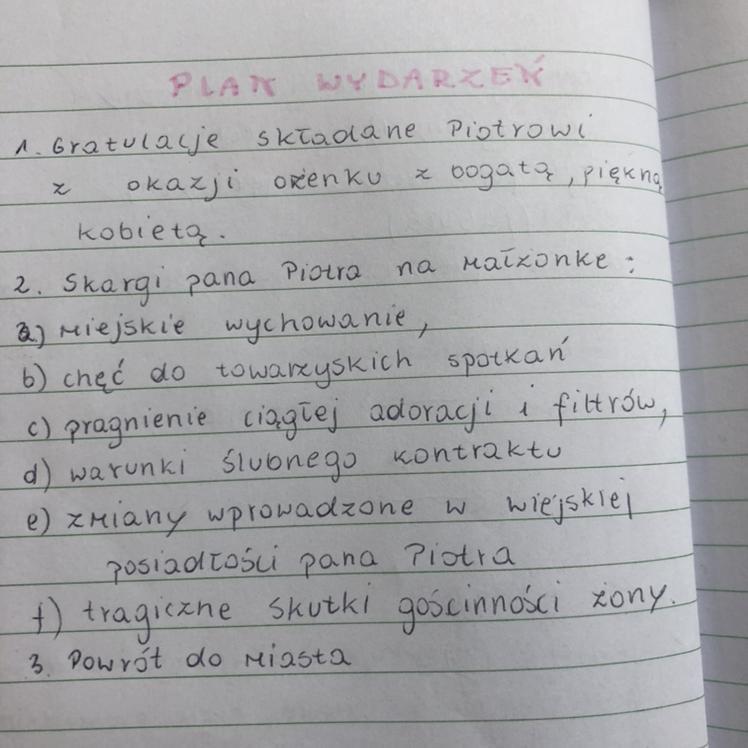 PLAN WYDARZEŃ
1. Gratulacje składane Piotrowi
z okazji ożenku z bogatą, piękną
kobietą.
2. Skargi pana Piotra na małżonkę:
a) miejskie wychowanie,
b) chęć do towarzyskich spotkań
c) pragnienie ciągłej adoracji i flirtrów,
d) warunki ślubnego kontraktu
e) zmiany wprowadzone w wiejskiej
posiadłości pana Piotra
f) tragiczne skutki gościnności żony.
3. Powrót do miasta